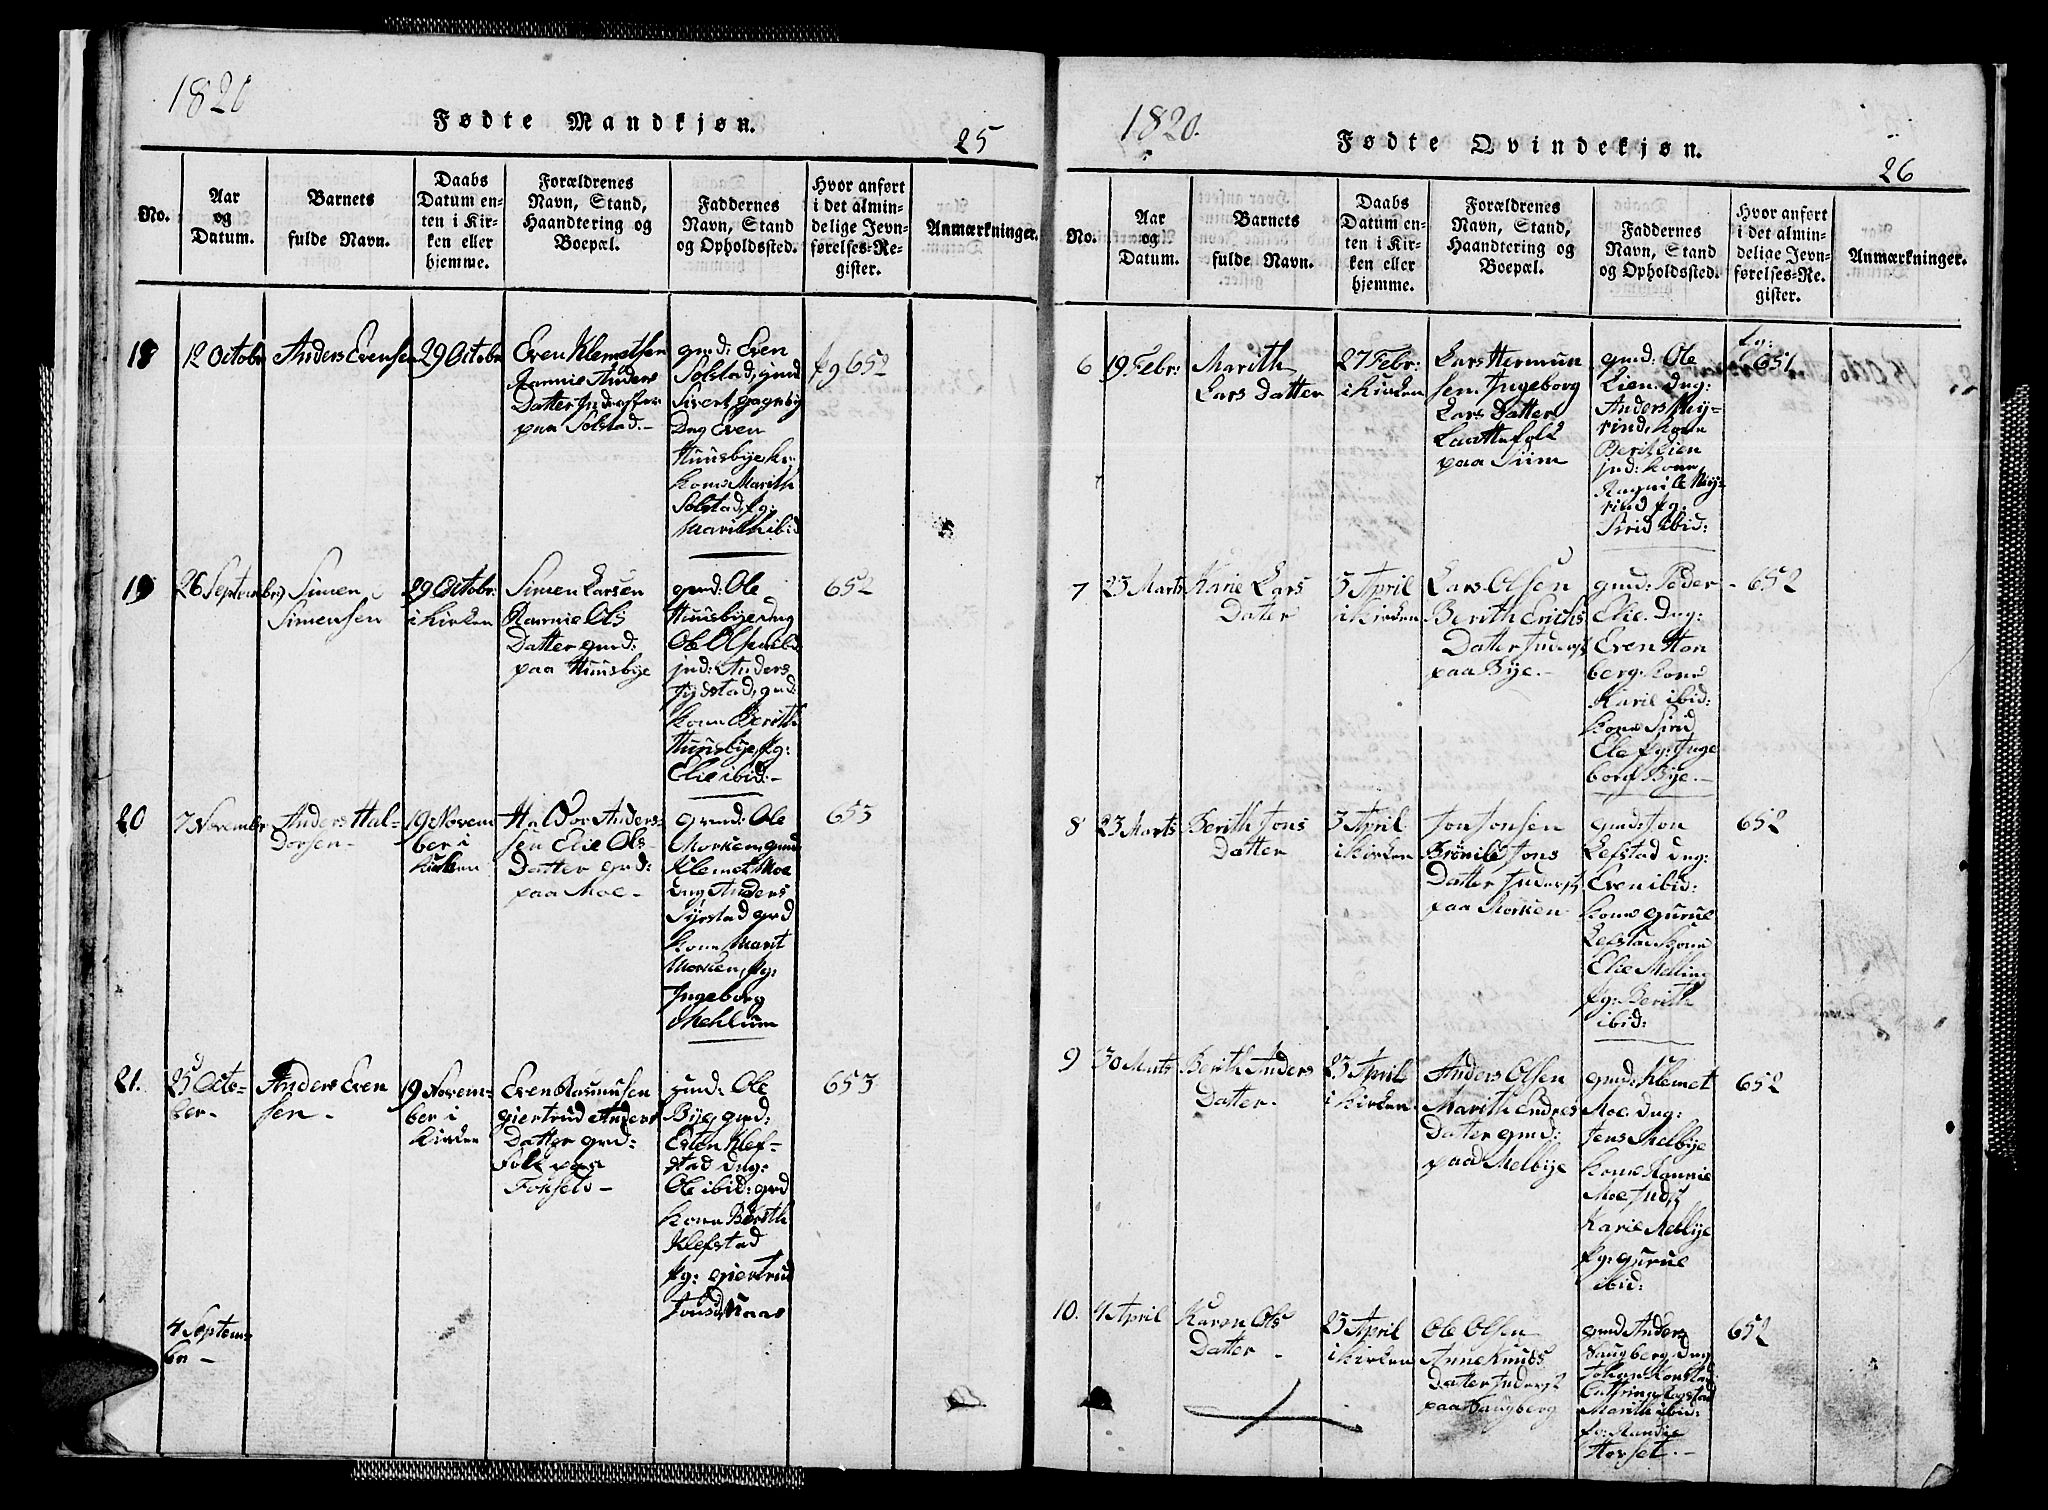 1820
Fødte Mandkjøn.
25
No.
Aar
og
Datum.
Barnets
fulde Navn.
Daabs
Datum en-
ten i Kir-
ken eller
hjemme.
Forældrenes
Navn, Stand,
Haandtering og
Boepæl.
Faddernes
Navn, Stand
og Opholdssted.
Hvor anført
i det almin-
delige Jevn-
førelses-Re-
gister.
Anmærkninger.
18
12 Octobr
Anders Evensen
29 Octobr
Even Klemetsen
Anders
Datter Inderster
paa Solstad.-
gmd: Even
Solstad, gmd
Sivert
Dug Even
Huusbye,
kone Marith
Solstad, pg:
Marith ibid
pg 652
19
26 Septembr
Simen
Simensen
29 Octobr:
i Kirken
Simen Larsen
Ols
Datter gmd:
paa Huusbye
gmd: Ole
Huusbye, dug
Ole
ind: Anders
gmd:
kone Berith
Huusbye, pg:
Elie ibid:-
652
20
7 Novembr
Anders Hal-
dorsen-
19 Novem
ber i
Kirken
Haldor Anders-
sen Elie Ols-
Datter gmd:
paa Moe-
gmd: Ole
Morken, gmd
Klemet Moe
dug Anders
gmd
kone Marit
Morken, pg:
Ingeborg
Mehlum
653
21.
25 Octo-
ber-
Anders Even
sen-
19 Novem-
ber i
Kirken
Even Rasmusen
giertrud Anders
Datter gmd:
Folk paa
gmd: Ole
Bye gmd:
Esten Klef-
stad dug:
Ole ibid: gmd
kone Berith
Klefstad
pg: giertrud
653
4 Septem-
ber-
1820.
Fødte Qvindekjøn.
26
No.
Aar
og
Datum.
Barnets
fulde Navn.
Daabs
Datum en-
ten i Kir-
ken eller
hjemme.
Forældrenes
Navn, Stand,
Haandtering og
Boepæl.
Faddernes
Navn, Stand
og Opholdssted.
Hvor anført
i det almin-
delige Jevn-
førelses-Re-
gister.
Anmærkninger.
6
19 Febr:
Marith
Lars Datter
27 Febr:
i Kirken
Lars Hermun
sen. Ingeborg
Lars Datter
paa
gmd: Ole
Lien. dug:
Anders
kone
Berit Lien
ind: kone
pg:
Sirid ibid:
pg:
651
7
23 Marts
Karie Lars
Datter
3 April
i Kirken
Lars Olsen
Berith Erichs
Datter Inderst
paa Bye.-
gmd: Peder
Elie. Dug:
Even Hon
berg. kone
Karie ibid:
kone Sirid
Elie pg: Inge
borg Bye.-
652
8
23 Marts
Berith Jons
Datter
3 April
i Kirken
Jon Jonsen
Brønild Jons
Datter Inderst
paa Morken-
gmd: Jon
Lefstad dug:
Even ibid:
kone gurue
Lefstad kone
Elie Melbye
pg: Berith
ibid:
652
9
30 Marts
Berith Anders
Datter.
23 April
i Kirken
Anders Olsen
Marith Endres
Datter gmd:
paa Melbye
gmd: Klemet
Moe dug:
Jens Melbye
kone Rannie
Moe Inds
Karie Melbye
pg: gurue
ibid:
652
10.
4 April
Karen Ols
Datter
-
23 April
i Kirken
Ole Olsen
Anne Knuds
Datter Inderst
paa Haugberg
gmd Anders
Haugberg. dug
Johan
Marith ibid:
pg:
Horset.-
652